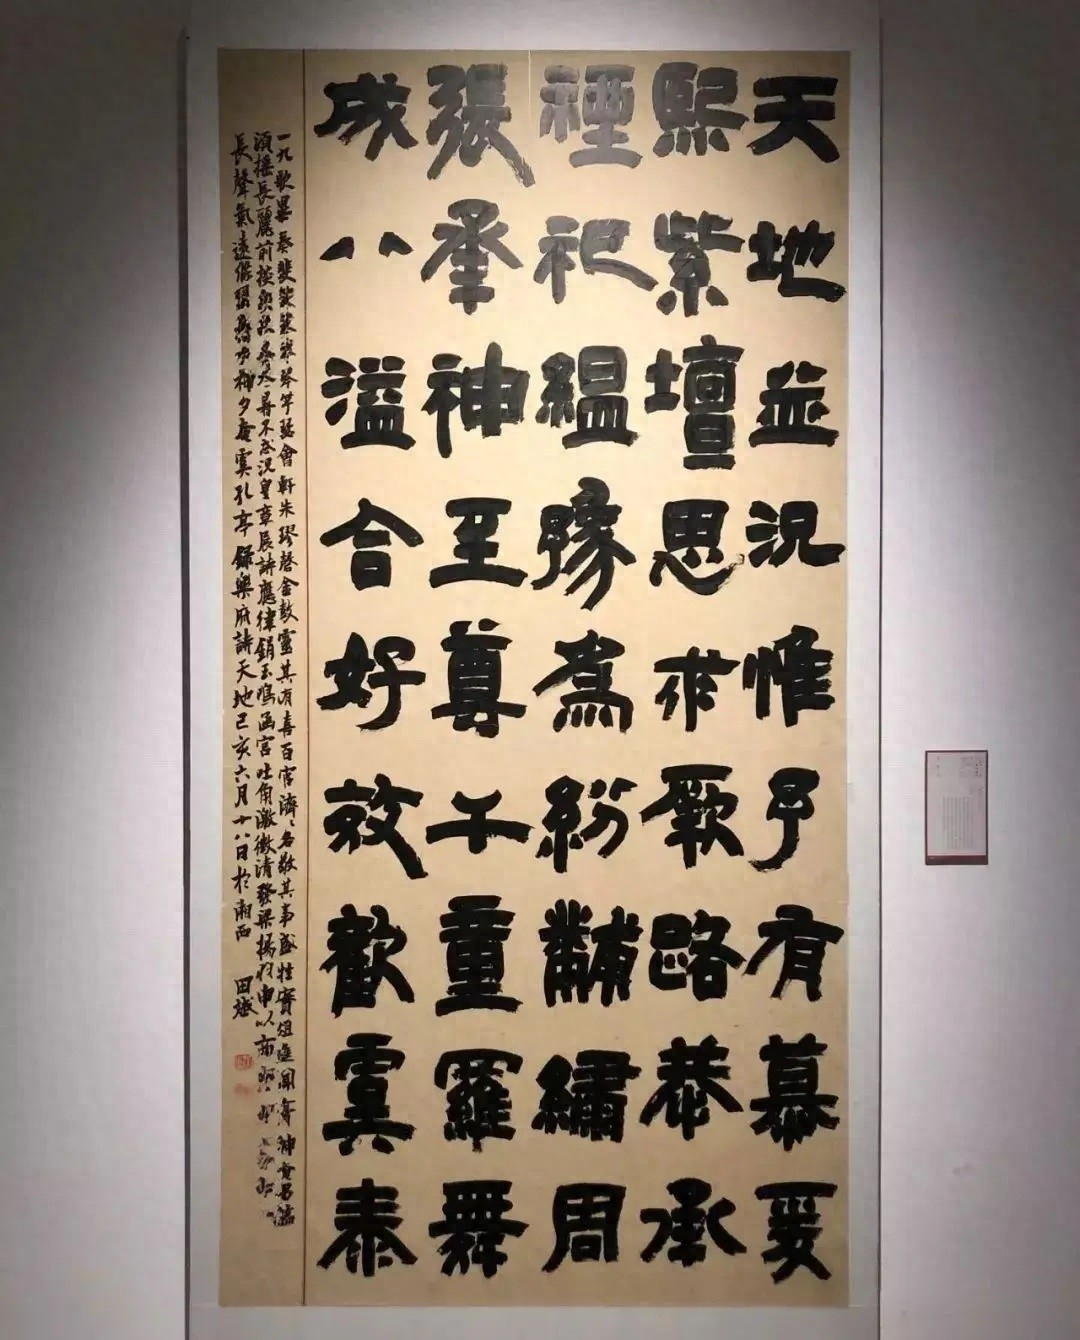 天地並況惟予有慕爰
熙紫壇思求厥路恭承
禋祀縕豫為紛黼繡周
張承神至尊千童羅舞
成八溢合好效歡虞泰
一九歌畢奏斐然殊琴竽瑟會軒朱璆磬金鼓靈其有喜百官濟各敬其事盛牲實俎進聞膏神奄留臨
須搖長麗前掞不忒況皇章展詩應律鋗玉鳴函宮吐角激徵清發梁揚羽申以商
長聲氣遠條神夕奄虞孔享錄樂府詩天地己亥六月十八日於湘西 田斌